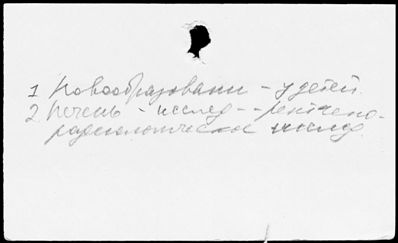 1 Новообразовани - у детей.
2. Печень - исслед - - рентгено-
радиологическое исслед.